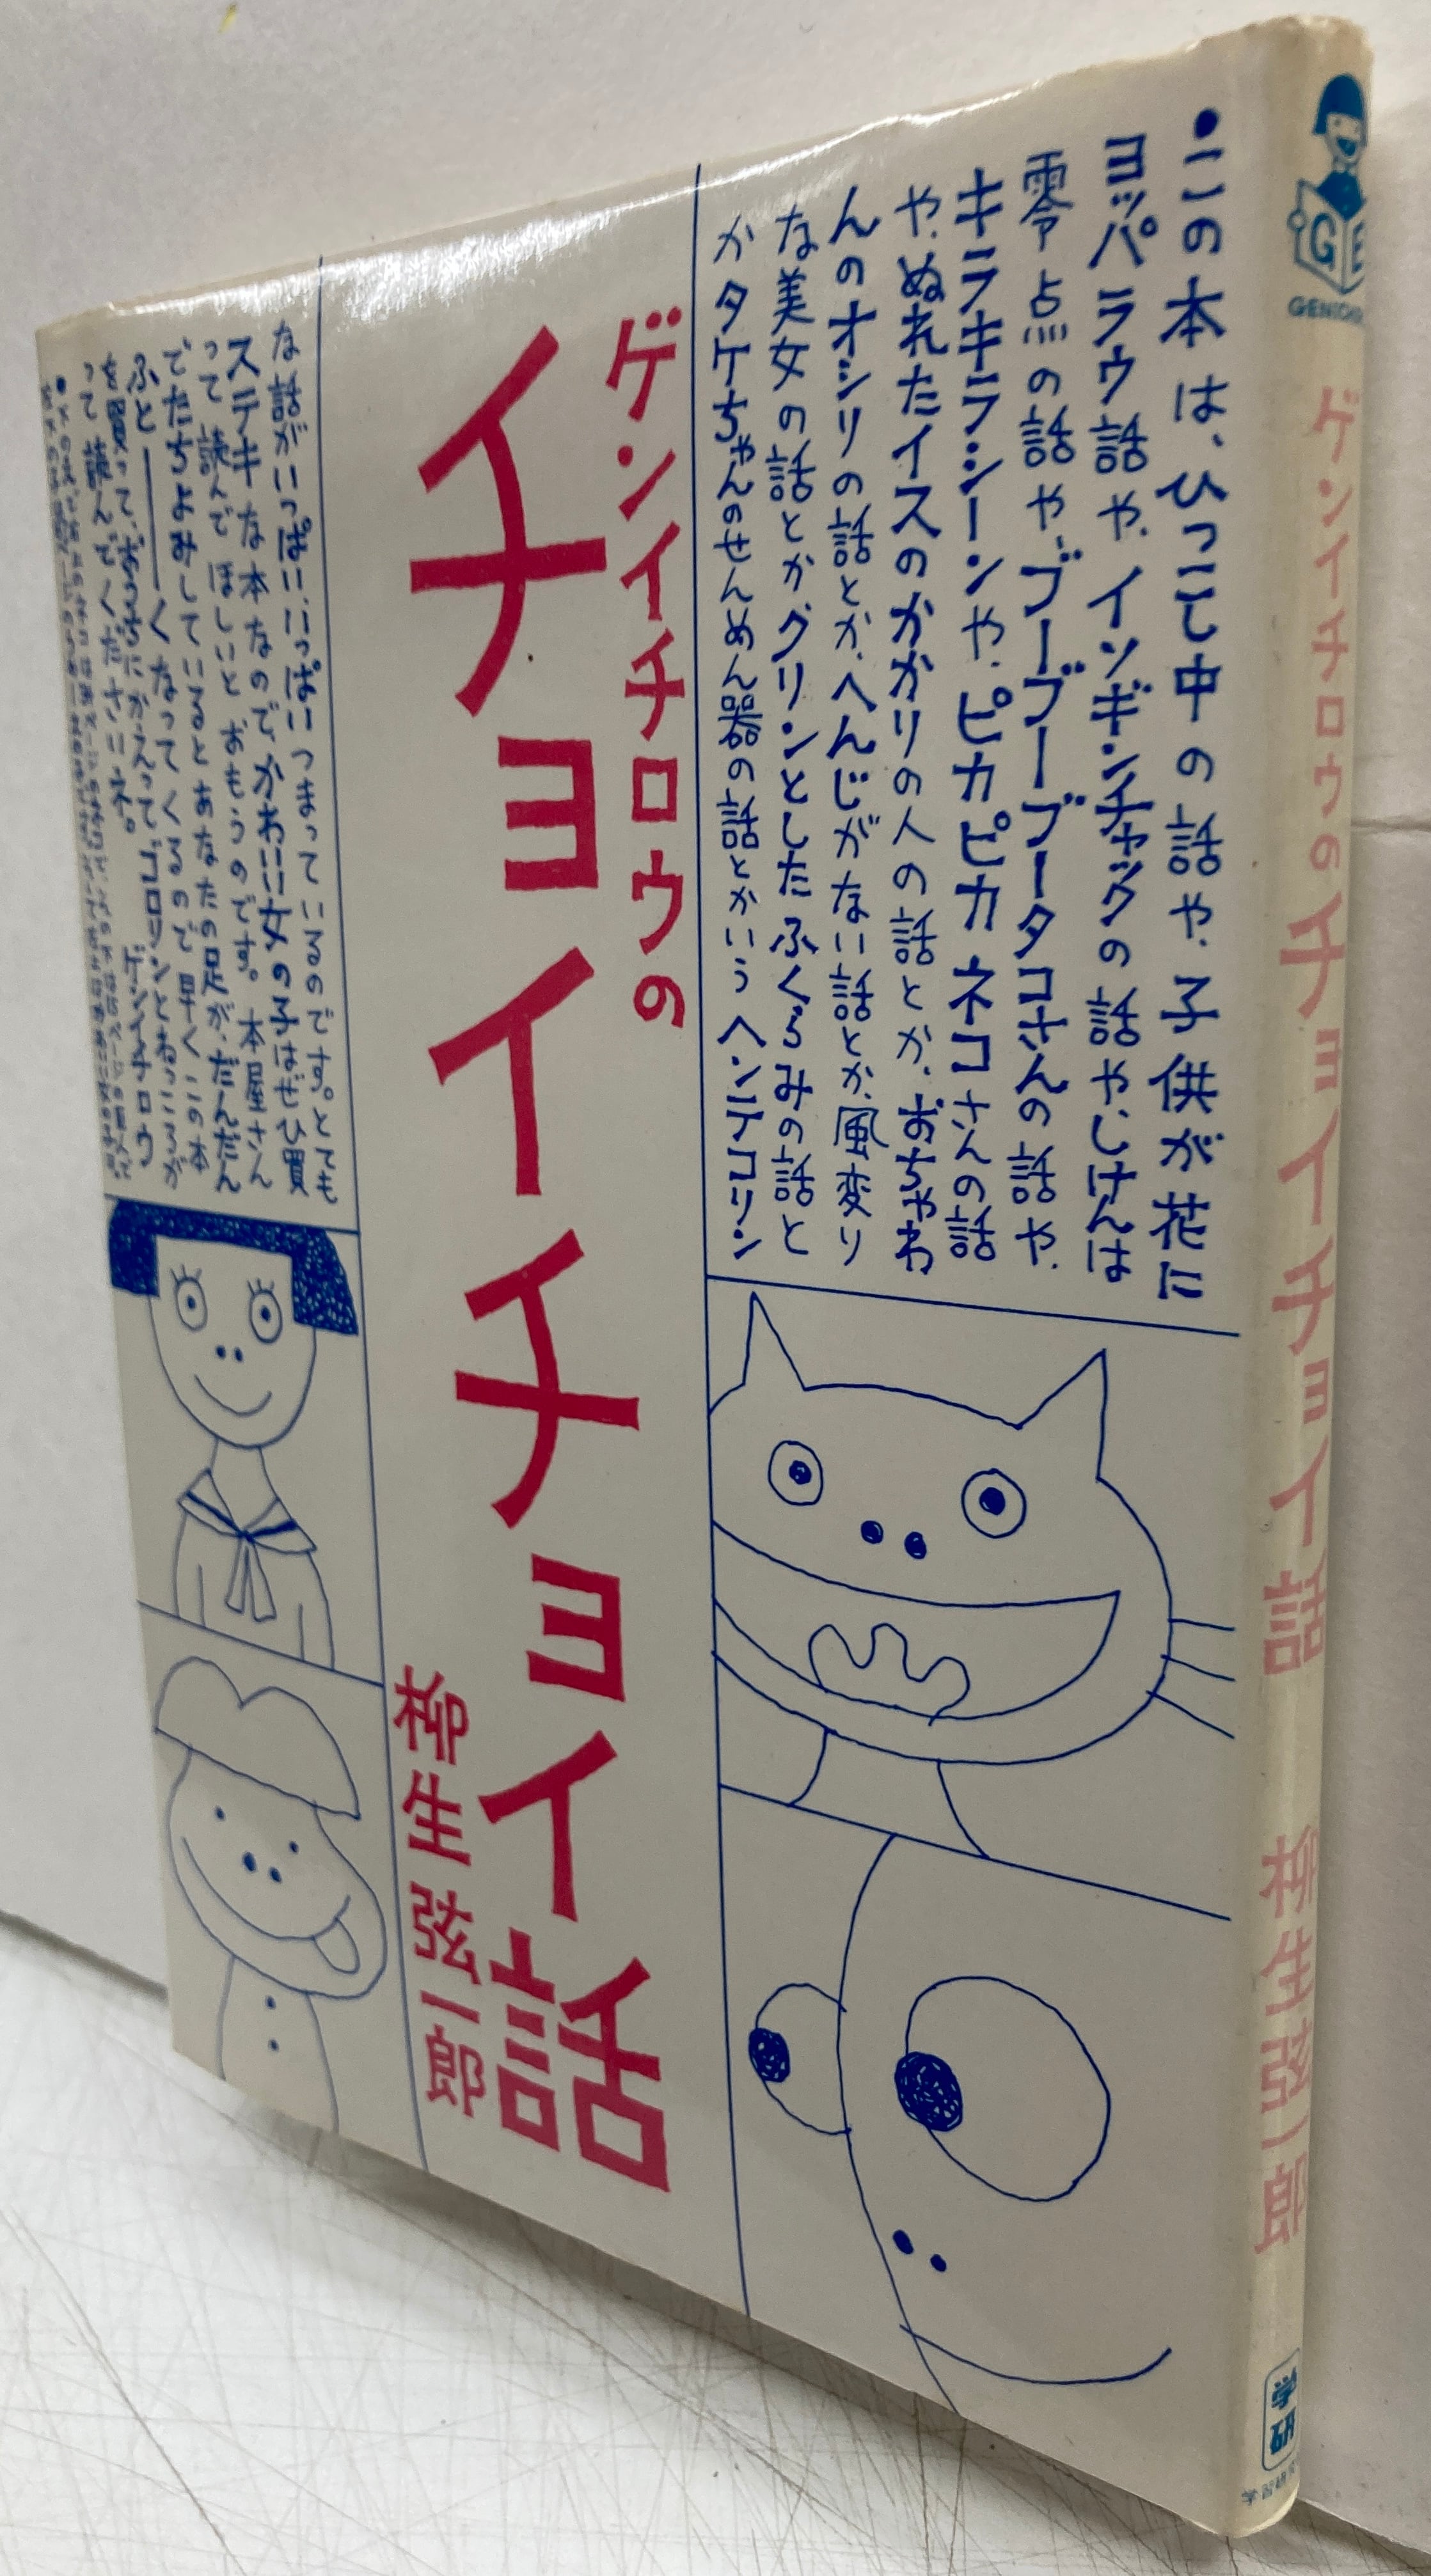 ●この本は、ひっこし中の話や、子供が花に
ヨッパラウ話や、インギンチャックの話や、しけんは
零点の話や、ブーブーブータコさんの話や、
キラキラシーンや、ピカピカネコさんの話
や、ぬれたイスのかかりの人の話とか、おちゃわ
んのオシリの話とか、へんじがない話とか、風変り
な美女の話とかグリンとしたふくらみの話と
かタケちゃんのせんめん器の話とかいうヘンテコリン
ゲンイチロウの
チョイチョイ話
柳生弦一郎
な話がいっぱいいっぱいつまっているのです。とても
ステキな本なので、かわいい女の子はぜひ買
って読んでほしいとおもうのです。本屋さん
でたちよみしているとあなたの足が、だんだん
ふと──くなってくるので早くこの本
を買って、おうちにかえって、ゴロリンとねっころが
って読んでくださいネ。 ゲンイチロウ
GE
ゲンイチロウのチョイチョイ話 柳生弦一郎
学研